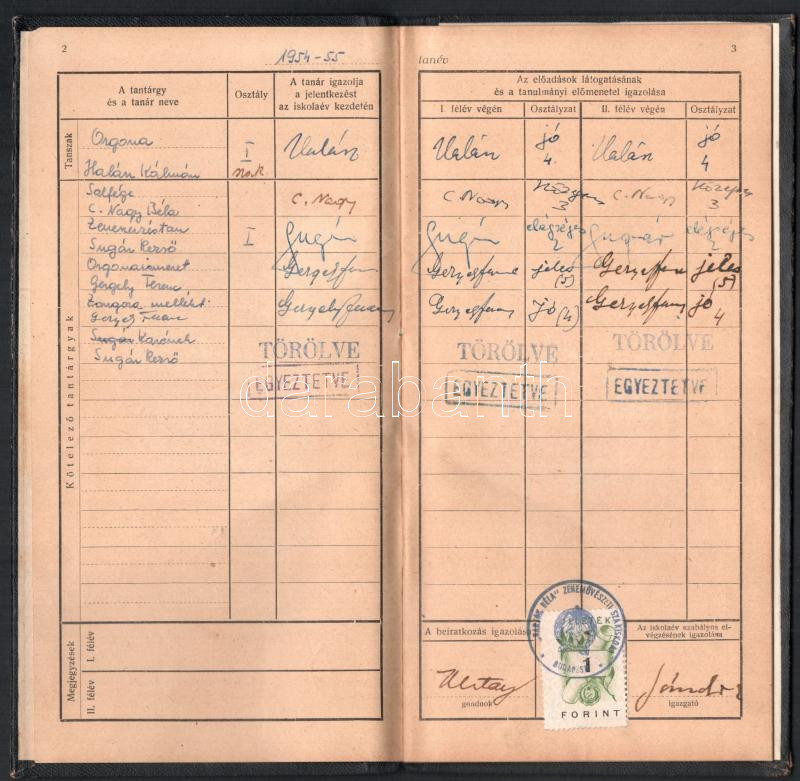 2
1954-55
tanév
3
A tantárgy
és a tanár neve
Osztály
A tanár igazolja
a jelentkezést
az iskolaév kezdetén
Az előadások látogatásának
és a tanulmányi előmenetel igazolása
I. félév végén
Osztályzat
II. félév végén
Osztályzat
Tanszak
Orgona
Halán Kálmán
I
Halán
Halán
jó
4.
Halán
jó
4
Kötelező tantárgyak
Szolfézs
C. Nagy Béla
C. Nagy
C. Nagy
közepes
3
C. Nagy
közepes
3
Zeneirástan
Sugár Rezső
I
Sugár
Sugár
elégséges
2
Sugár
elégséges
2
Orgonaismeret
Gergely Ferenc
Gergely Ferenc
jeles
(5)
jeles
(5)
Zongora mellékt.
Gergely Ferenc
Gergely Ferenc
jó (4)
jó
4
Sugár
Sugár Rezső
TÖRÖLVE
TÖRÖLVE
TÖRÖLVE
EGYEZTETVE
EGYEZTETVE
EGYEZTETVE
darabanth
Megjegyzések
I. félév
II. félév
A beiratkozás igazolása
gondnok
"BARTÓK BÉLA" ZENEMŰVÉSZETI SZAKISKOLA
BUDAPEST
1
FORINT
Az iskolaév szabályos el-
végzésének igazolása
igazgató